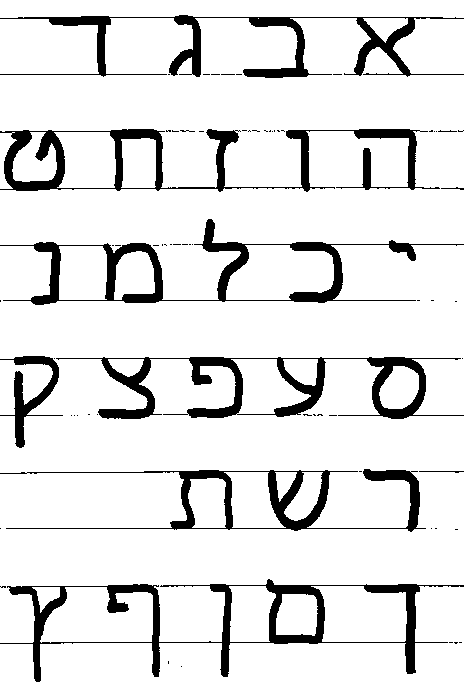 א ב ג ד
ה ו ז ח ט
י כ ל מ נ
ס ע פ צ ק
ר ש ת
ך ם ן ף ץ